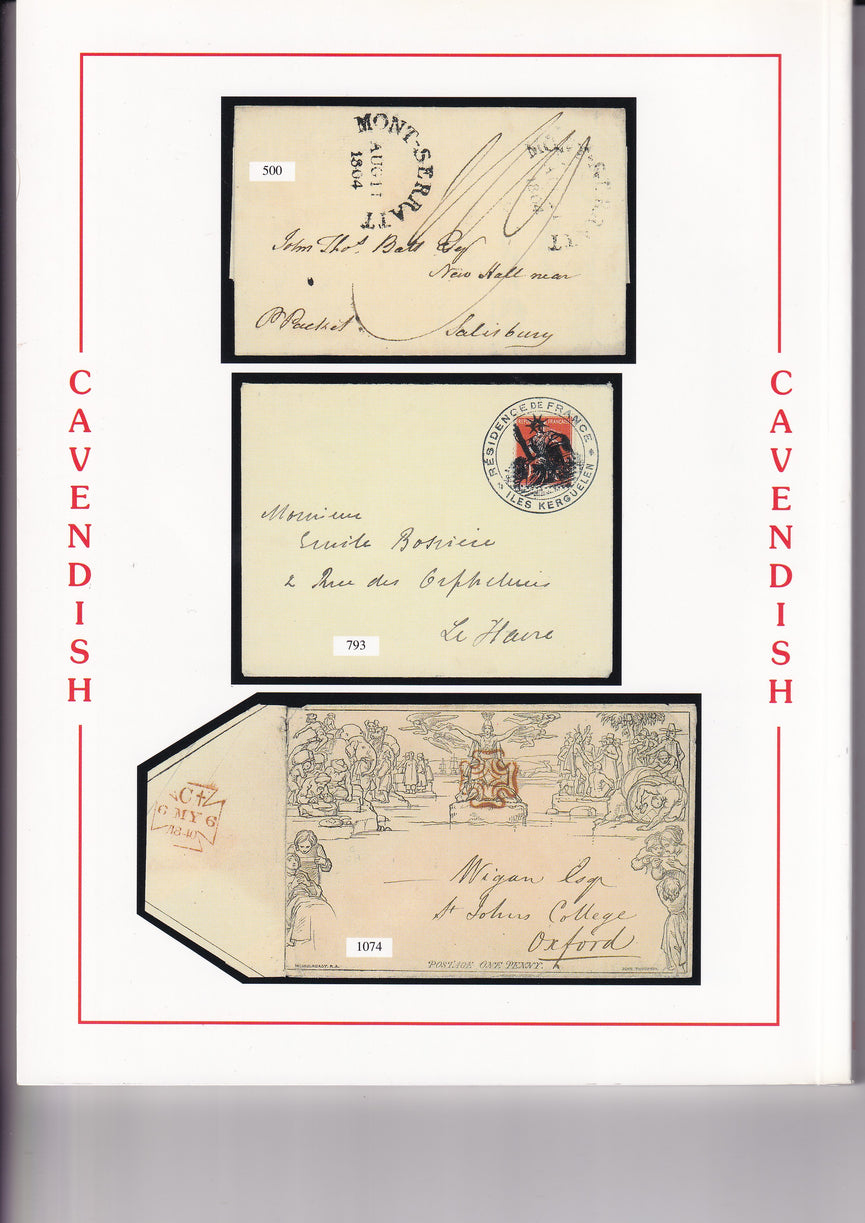 CAVENDISH
CAVENDISH
500
MONT-SERRATT
AUG 11
1804
John Thos. Batt Esq
New Hall near
Salisbury
Pr Packet
RÉSIDENCE DE FRANCE
ILES KERGUELEN
Monsieur
Emile Bossière
2 Rue des Orphelines
Le Havre
793
C
6 MY 6
1840
Wigan Esqr
St Johns College
Oxford
1074
POSTAGE ONE PENNY.
W. MULREADY. R.A.
JOHN THOMPSON.